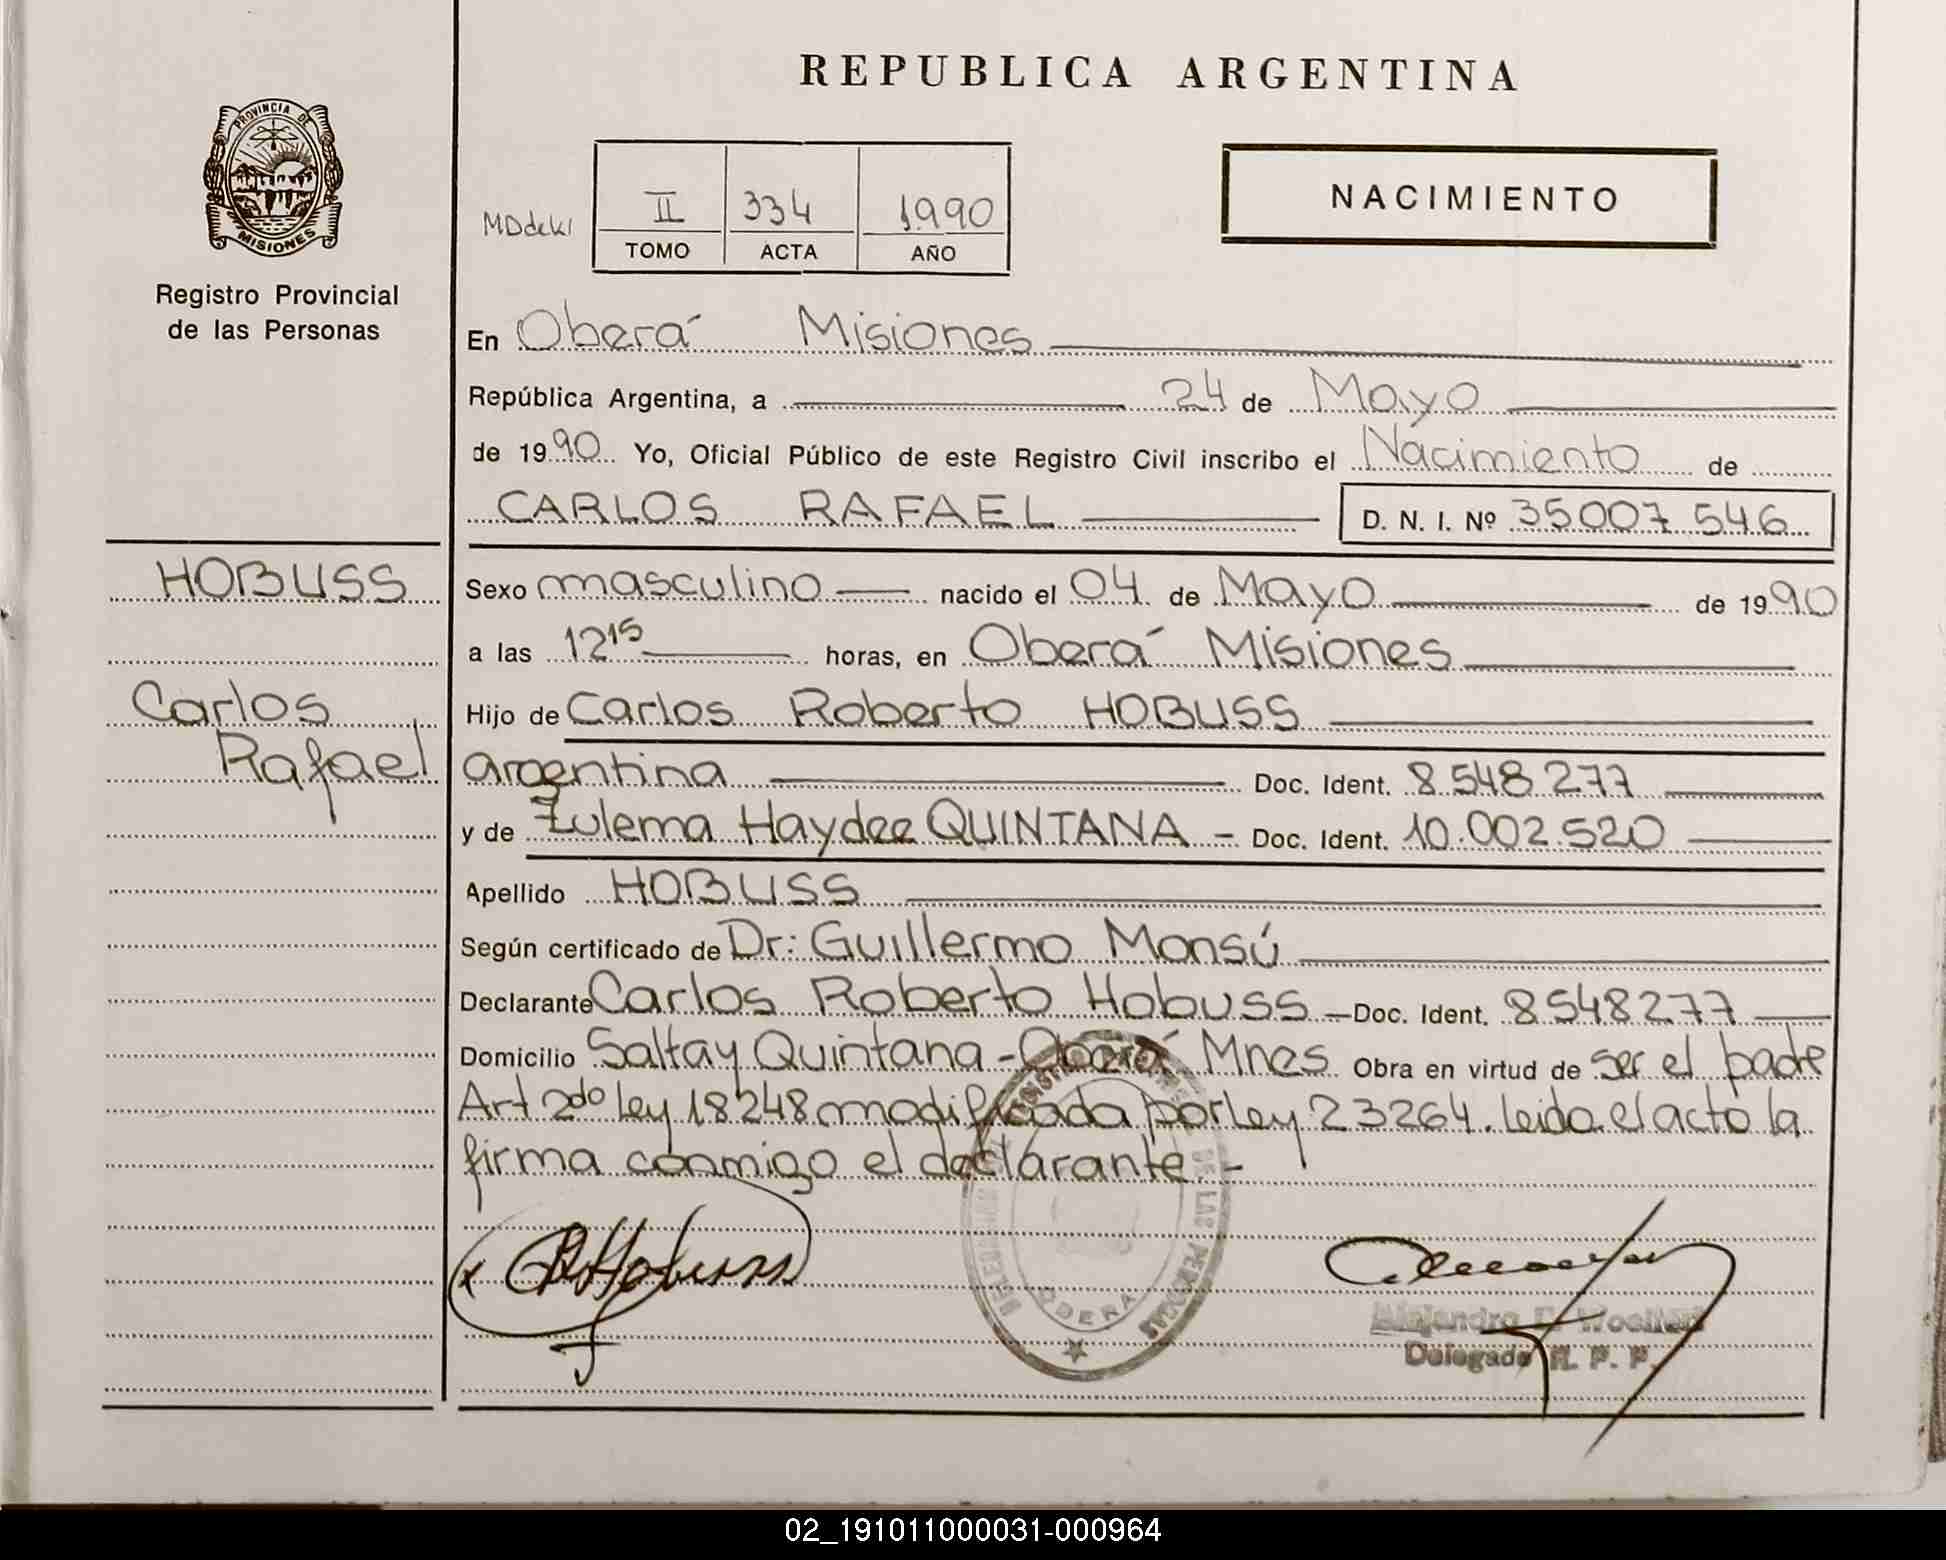 REPUBLICA ARGENTINA
PROVINCIA DE
MISIONES
Registro Provincial
de las Personas
II 334 1990
TOMO ACTA AÑO
NACIMIENTO
En Oberá Misiones
República Argentina, a 24 de Mayo
de 1990 Yo, Oficial Público de este Registro Civil inscribo el Nacimiento de
CARLOS RAFAEL D. N. I. Nº 35007 546
HOBUSS
Carlos
Rafael
Sexo masculino nacido el 04 de Mayo de 1990
a las 12 15 horas, en Oberá Misiones
Hijo de Carlos Roberto HOBUSS
argentina Doc. Ident. 8.548.277
y de Zulema Haydee QUINTANA - Doc. Ident. 10.002.520
Apellido HOBUSS
Según certificado de Dr: Guillermo Monsú
Declarante Carlos Roberto Hobuss - Doc. Ident. 8548277
Domicilio Salta y Quintana - Oberá Mnes Obra en virtud de ser el padre
Art 2do ley 18248 modificada por ley 23264. leida el acto la
firma conmigo el declarante -
DE LAS PERSONAS
OBERA
Alejandro
Delegado R. P. P.
02_191011000031-000964